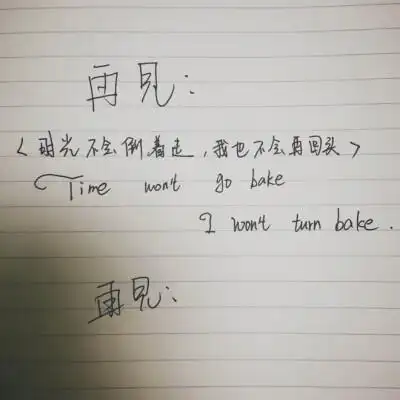 再见:
<时光不会倒着走,我也不会再回头>
Time won't go bake
I won't turn bake.
再见: